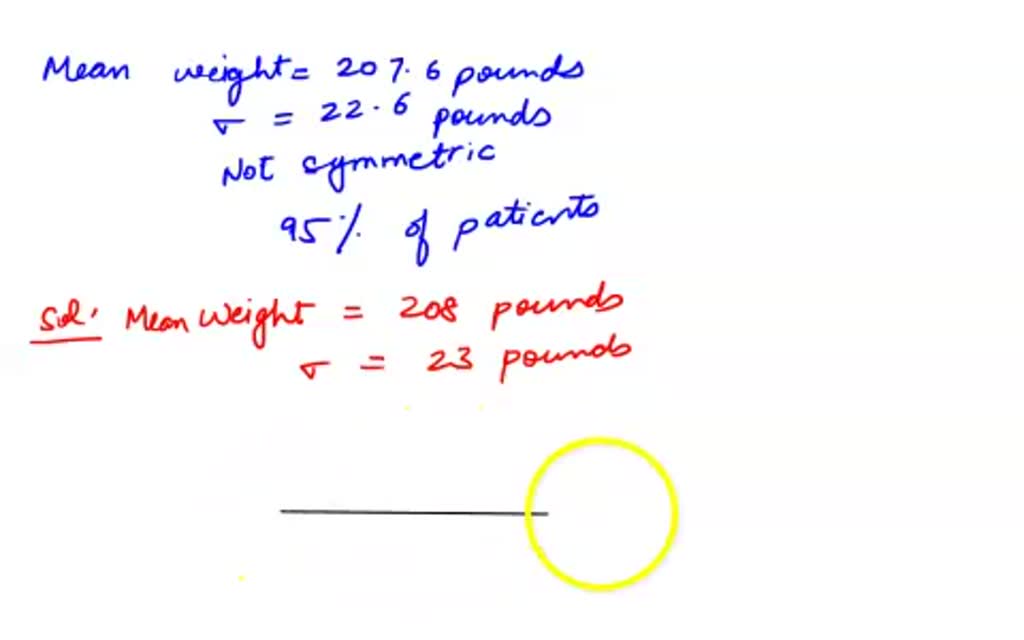 Mean weight = 207.6 pounds
σ = 22.6 pounds
Not symmetric
95% of patients
Sol. Mean Weight = 208 pounds
σ = 23 pounds